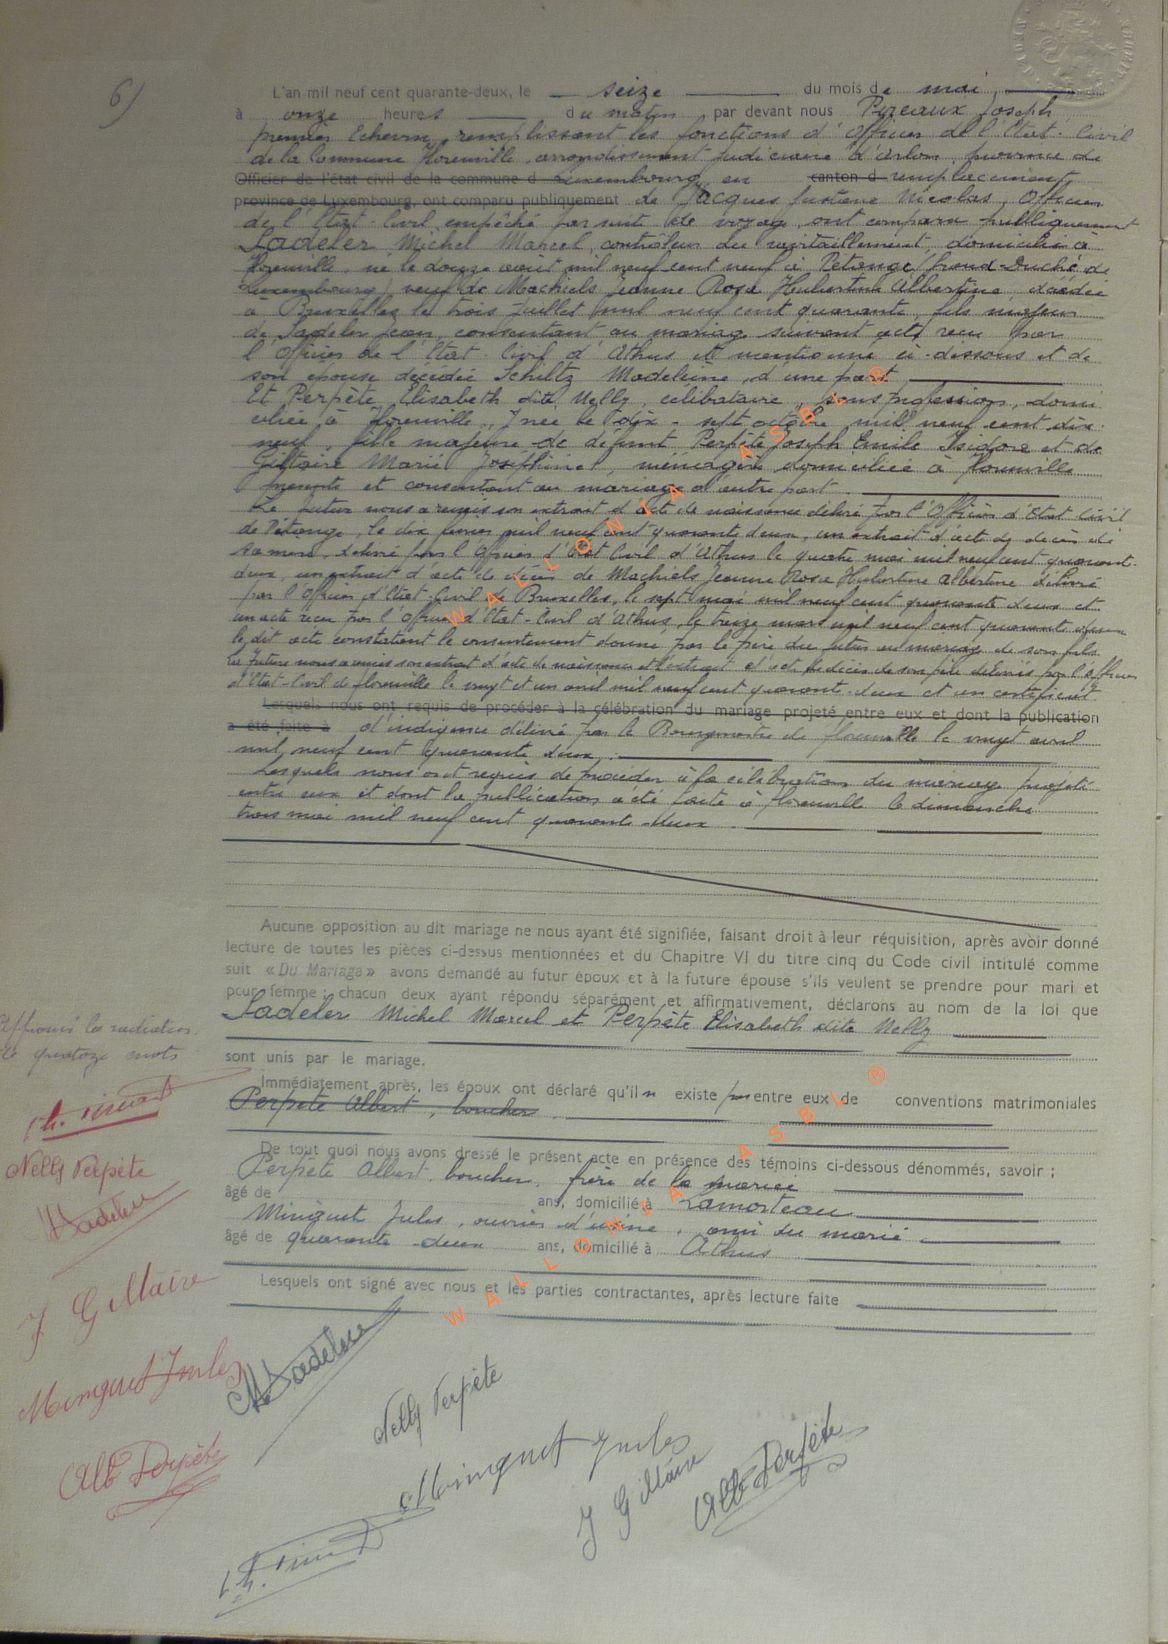 6)
L'an mil neuf cent quarante-deux, le seize du mois de mai
à onze heures du matin par devant nous Pireaux Joseph
premier Echevin, remplissant les fonctions d'Officier de l'Etat-Civil
de la Commune Florenville, arrondissement judiciaire d'Arlon, province de
Officier de l'état civil de la commune d Luxembourg, en canton d remplacement
province de Luxembourg, ont comparu publiquement de Jacques Justune Nicolas, Officier
de l'Etat-Civil empêché par suite de voyage, ont comparu publiquement
Sadeler Michel Marcel, contrôleur du ravitaillement, domicilié à
Florenville, né le douze août mil neuf cent neuf à Pétange (Grand-Duché de
Luxembourg), veuf de Machiels Jeanne Rose Hubertine Albertine, décédée
à Bruxelles le trois juillet mil neuf cent quarante, fils majeur
de Sadeler Jean, consentant au mariage suivant acte reçu par
l'Officier de l'Etat-Civil d'Athus et mentionné ci-dessous et de
son épouse décédée Schiltz Madeleine, d'une part
Et Perpète Elisabeth dite Nelly, célibataire, sans profession, domi
ciliée à Florenville, née le dix-sept octobre mil neuf cent dix-
neuf, fille majeure de défunt Perpète Joseph Emile Isidore et de
Gillaire Marie Joséphine, ménagère domiciliée à Florenville
présente et consentant au mariage d'autre part.
Le futur nous a remis son extrait d'acte de naissance délivré par l'Officier d'Etat Civil
de Pétange, le dix mil neuf cent quarante deux, un extrait d'acte de décès de
sa mère, délivré par l'Officier d'Etat Civil d'Athus le quatre mai mil neuf cent quarante-
deux, un extrait d'acte de décès de Machiels Jeanne Rose Hubertine Albertine délivré
par l'Officier d'Etat-Civil de Bruxelles, le sept mai mil neuf cent quarante deux et
un acte reçu par l'Officier d'Etat-Civil d'Athus, le treize mars mil neuf cent quarante
le dit acte constatant le consentement donné par le père du futur au mariage de son fils.
La future nous a remis son extrait d'acte de naissance et l'extrait d'acte de décès de son père délivrés par l'officier
d'Etat-Civil de Florenville le vingt et un avril mil neuf cent quarante-deux et un certificat
Lesquels nous ont requis de procéder à la célébration du mariage projeté entre eux et dont la publication
a été faite à d'indigence délivré par le Bourgmestre de Florenville le vingt avril
mil neuf cent quarante deux.
Lesquels nous ont requis de procéder à la célébration du mariage projeté
entre eux et dont la publication a été faite à Florenville le dimanche
trois mai mil neuf cent quarante-deux.
Aucune opposition au dit mariage ne nous ayant été signifiée, faisant droit à leur réquisition, après avoir donné
lecture de toutes les pièces ci-dessus mentionnées et du Chapitre VI du titre cinq du Code civil intitulé comme
suit « Du Mariage » avons demandé au futur époux et à la future épouse s'ils veulent se prendre pour mari et
pour femme ; chacun deux ayant répondu séparément et affirmativement, déclarons au nom de la loi que
Sadeler Michel Marcel et Perpète Elisabeth dite Nelly
sont unis par le mariage.
Approuvé la radiation
de quatorze mots
Immédiatement après, les époux ont déclaré qu'il n existe pas entre eux de conventions matrimoniales
Perpète Albert, boucher
De tout quoi nous avons dressé le présent acte en présence des témoins ci-dessous dénommés, savoir :
Perpète Albert, boucher, frère de la mariée
âgé de ans, domicilié à Lamorteau
Minguet Jules, ouvrier d'usine, ami du marié
âgé de quarante-deux ans, domicilié à Athus
Lesquels ont signé avec nous et les parties contractantes, après lecture faite
Nelly Perpète
MSadeler
J Gillaire
Minguet Jules
Alb Perpète
MSadeler
Nelly Perpète
Minguet Jules
J Gillaire
Alb Perpète
WALLONIA ASBL ®
WALLONIA ASBL ®